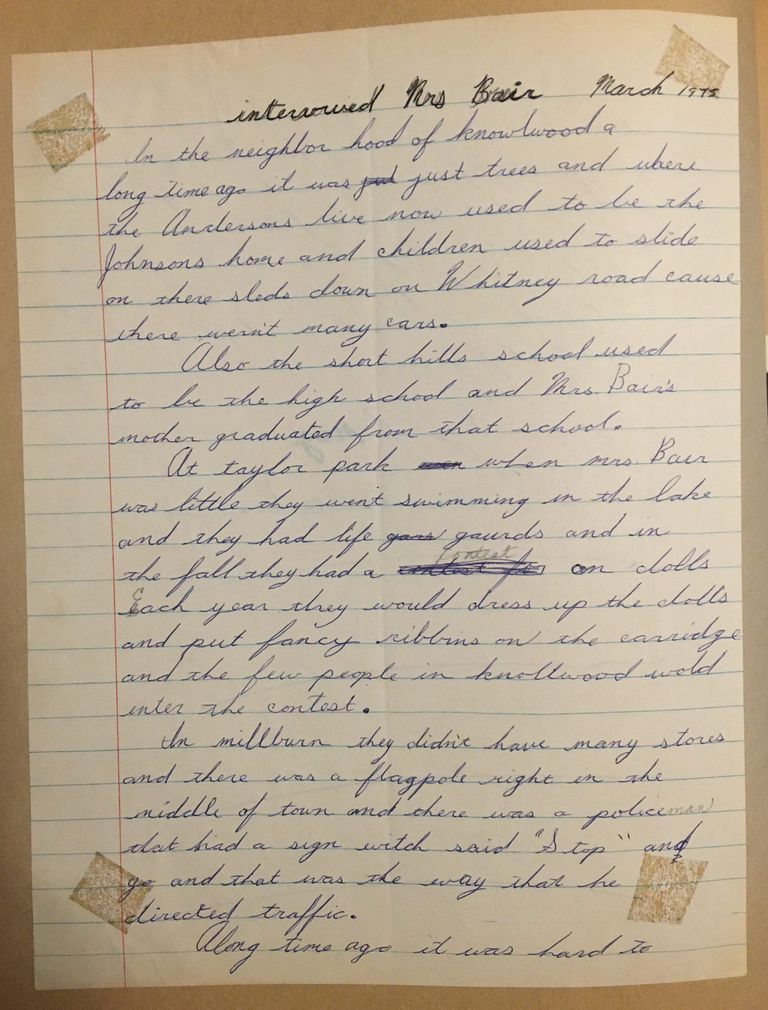 interviwed Mrs Bair March 1975
In the neighbor hood of knowlwood a
long time ago it was just trees and where
the Andersons live now used to be the
Johnsons home and children used to slide
on there sleds down on Whitney road cause
there wern't many cars.
Also the short hills school used
to be the high school and Mrs. Bair's
mother graduated from that school.
At taylor park when mrs. Bair
was little they went swimming in the lake
and they had life gaurds and in
the fall they had a contest on dolls
Each year they would dress up the dolls
and put fancy ribbins on the carridge
and the few people in knollwood wold
enter the contest.
In millburn they didn't have many stores
and there was a flagpole right in the
middle of town and there was a policeman
that had a sign witch said "Stop" and
go and that was the way that he
directed traffic.
Along time ago it was hard to